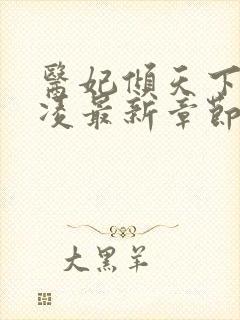 醫妃傾天下
凌最新章節
大黑羊